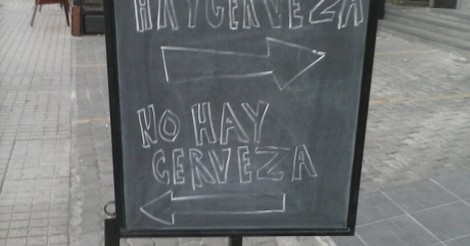 HAY CERVEZA
NO HAY
CERVEZA